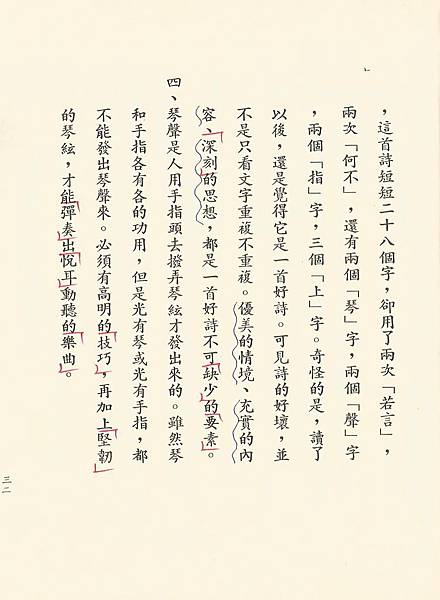 ，這首詩短短二十八個字，卻用了兩次「若言」，
兩次「何不」，還有兩個「琴」字，兩個「聲」字
，兩個「指」字，三個「上」字。奇怪的是，讀了
以後，還是覺得它是一首好詩。可見詩的好壞，並
不是只看文字重複不重複。優美的情境、充實的內
容、深刻的思想，都是一首好詩不可缺少的要素。
四、琴聲是人用手指頭去撥弄琴絃才發出來的。雖然琴
和手指各有各的功用，但是光有琴或光有手指，都
不能發出琴聲來。必須有高明的技巧，再加上堅韌
的琴絃，才能彈奏出悅耳動聽的樂曲。
三二